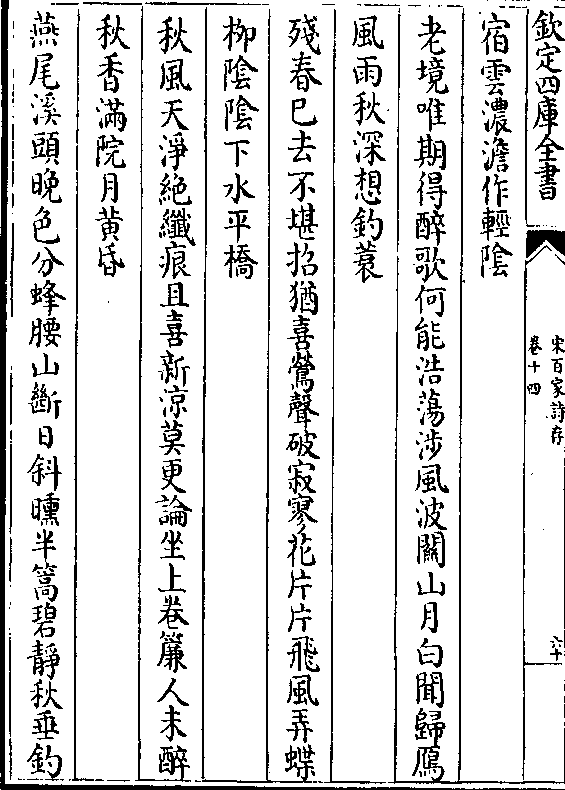 欽定四庫全書
宋百家詩存
卷十四
六十
宿雲濃澹作輕陰
老境唯期得醉歌何能浩蕩涉風波關山月白聞歸鴈
風雨秋深想釣蓑
殘春已去不堪招猶喜鶯聲破寂寥花片片飛風弄蝶
柳陰陰下水平橋
秋風天淨絶纖痕且喜新涼莫更論坐上卷簾人未醉
秋香滿院月黄昏
燕尾溪頭晚色分蜂腰山斷日斜曛半篙碧靜秋垂釣